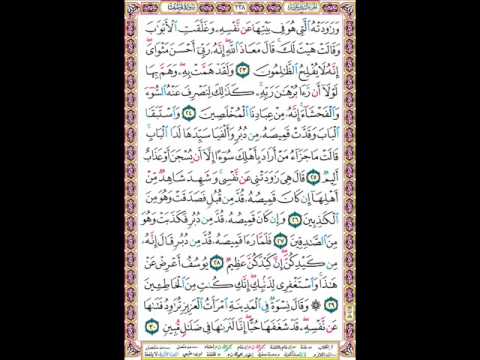 ٢٣٨
وَرَٰوَدَتْهُ ٱلَّتِى هُوَ فِى بَيْتِهَا عَن نَّفْسِهِۦ وَغَلَّقَتِ ٱلْأَبْوَٰبَ
وَقَالَتْ هَيْتَ لَكَ ۚ قَالَ مَعَاذَ ٱللَّهِ ۖ إِنَّهُۥ رَبِّىٓ أَحْسَنَ مَثْوَاىَ ۖ
إِنَّهُۥ لَا يُفْلِحُ ٱلظَّٰلِمُونَ ٢٣ وَلَقَدْ هَمَّتْ بِهِۦ ۖ وَهَمَّ بِهَا
لَوْلَآ أَن رَّءَا بُرْهَٰنَ رَبِّهِۦ ۚ كَذَٰلِكَ لِنَصْرِفَ عَنْهُ ٱلسُّوٓءَ
وَٱلْفَحْشَآءَ ۚ إِنَّهُۥ مِنْ عِبَادِنَا ٱلْمُخْلَصِينَ ٢٤ وَٱسْتَبَقَا
ٱلْبَابَ وَقَدَّتْ قَمِيصَهُۥ مِن دُبُرٍ وَأَلْفَيَا سَيِّدَهَا لَدَا ٱلْبَابِ ۚ
قَالَتْ مَا جَزَآءُ مَنْ أَرَادَ بِأَهْلِكَ سُوٓءًا إِلَّآ أَن يُسْجَنَ أَوْ عَذَابٌ
أَلِيمٌ ٢٥ قَالَ هِىَ رَٰوَدَتْنِى عَن نَّفْسِى ۚ وَشَهِدَ شَاهِدٌ مِّنْ
أَهْلِهَآ إِن كَانَ قَمِيصُهُۥ قُدَّ مِن قُبُلٍ فَصَدَقَتْ وَهُوَ مِنَ
ٱلْكَٰذِبِينَ ٢٦ وَإِن كَانَ قَمِيصُهُۥ قُدَّ مِن دُبُرٍ فَكَذَبَتْ وَهُوَ
مِنَ ٱلصَّٰدِقِينَ ٢٧ فَلَمَّا رَءَا قَمِيصَهُۥ قُدَّ مِن دُبُرٍ قَالَ إِنَّهُۥ
مِن كَيْدِكُنَّ ۖ إِنَّ كَيْدَكُنَّ عَظِيمٌ ٢٨ يُوسُفُ أَعْرِضْ عَنْ
هَٰذَا ۚ وَٱسْتَغْفِرِى لِذَنۢبِكِ ۖ إِنَّكِ كُنتِ مِنَ ٱلْخَاطِـِٔينَ
٢٩ وَقَالَ نِسْوَةٌ فِى ٱلْمَدِينَةِ ٱمْرَأَتُ ٱلْعَزِيزِ تُرَٰوِدُ فَتَىٰهَا
عَن نَّفْسِهِۦ ۖ قَدْ شَغَفَهَا حُبًّا ۖ إِنَّا لَنَرَىٰهَا فِى ضَلَٰلٍ مُّبِينٍ ٣٠